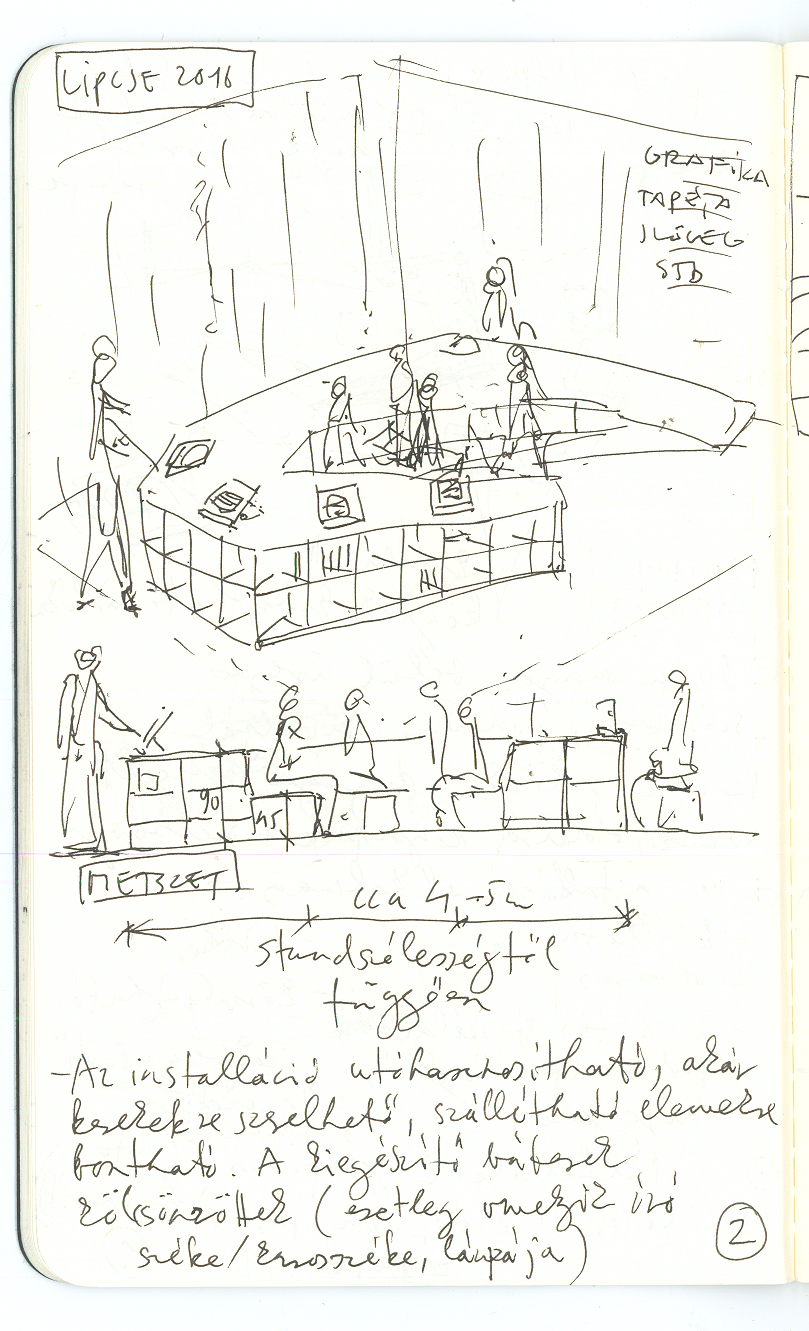 LIPCSE 2016
GRAFIKA
TAPÉTA
SZÖVEG
STB
90
45
METSZET
cca 4,-5m
standszélességtől
függően
- Az installáció utóhasznosítható, akár
kerekekre szerelhető, szállítható elemekre
bontható. A kiegészítő bútorok
kölcsönzöttek (esetleg vmelyik író
széke/karosszéke, lámpája)
2